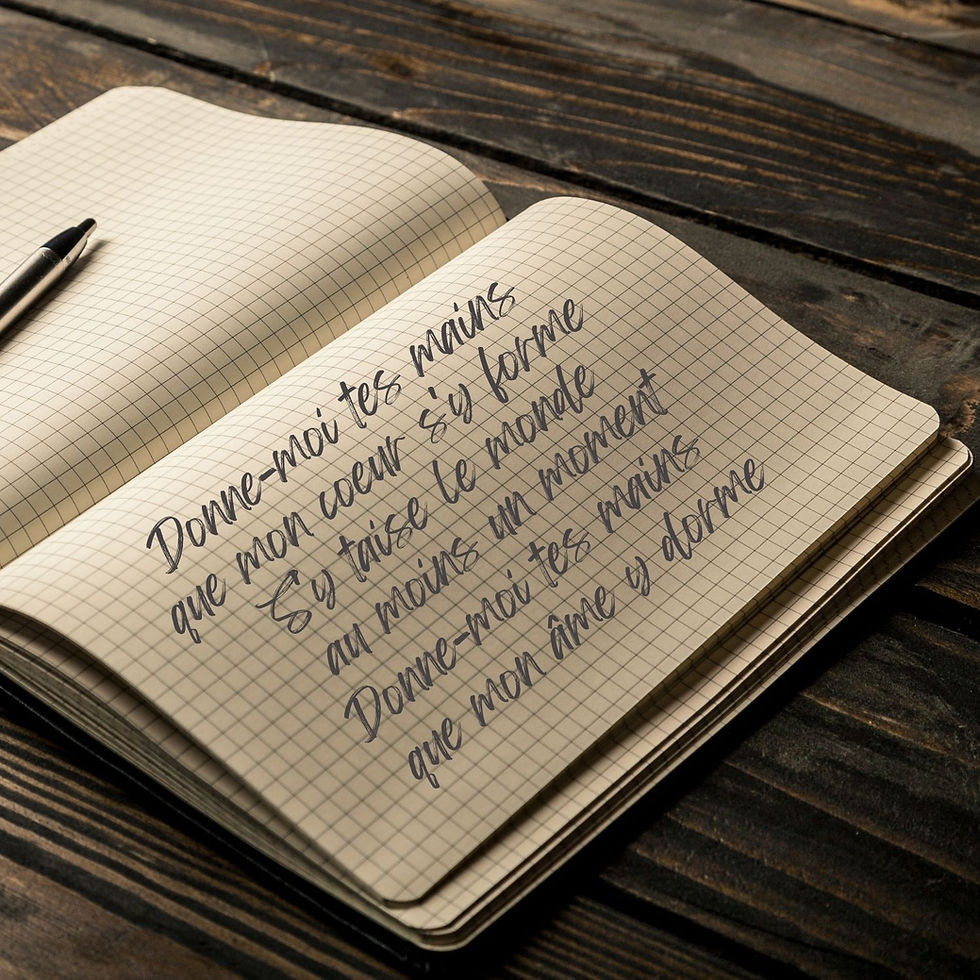 Donne-moi tes mains
que mon coeur s'y forme
S'y taise le monde
au moins un moment
Donne-moi tes mains
que mon âme y dorme